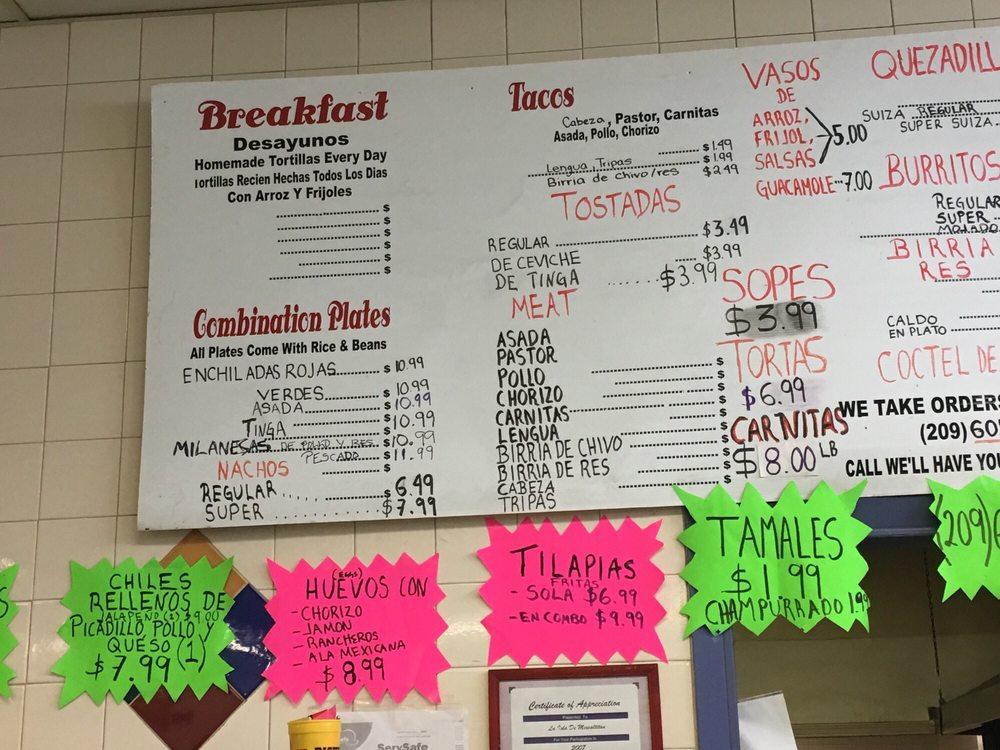 Breakfast
Desayunos
Homemade Tortillas Every Day
Tortillas Recien Hechas Todos Los Dias
Con Arroz Y Frijoles
$
$
$
$
$
$
Combination Plates
All Plates Come With Rice & Beans
ENCHILADAS ROJAS $10.99
VERDES $10.99
ASADA $10.99
TINGA $10.99
MILANESAS DE POLLO Y RES $10.99
PESCADO $11.99
NACHOS $
REGULAR $6.49
SUPER $7.99
Tacos
Cabeza, Pastor, Carnitas
Asada, Pollo, Chorizo
$1.49
Lengua, Tripas $1.99
Birria de chivo/res $2.49
TOSTADAS
REGULAR $3.49
DE CEVICHE $3.99
DE TINGA $3.99
MEAT
ASADA
PASTOR $
POLLO $
CHORIZO $
CARNITAS $
LENGUA $
BIRRIA DE CHIVO $
BIRRIA DE RES $
CABEZA $
TRIPAS
VASOS
DE
ARROZ,
FRIJOL, 5.00
SALSAS
GUACAMOLE 7.00
SOPES
$3.99
TORTAS
$6.99
CARNITAS
$8.00 LB
QUEZADILL
REGULAR
SUIZA
SUPER SUIZA
BURRITOS
REGULAR
SUPER
MOJADO
BIRRIA
RES
CALDO
EN PLATO
COCTEL DE
WE TAKE ORDERS
(209) 60
CALL WE'LL HAVE YOU
S
CHILES
RELLENOS DE
JALAPEÑO (2) $9.00
PICADILLO POLLO Y
QUESO (1)
$7.99
(EGGS)
HUEVOS CON
- CHORIZO
- JAMON
- RANCHEROS
- A LA MEXICANA
$8.99
TILAPIAS
FRITAS
- SOLA $6.99
- EN COMBO $9.99
TAMALES
$1.99
CHAMPURRADO 1.99
(209)6
ServSafe
Certificate of Appreciation
Presented To
For Your Participation In
2007